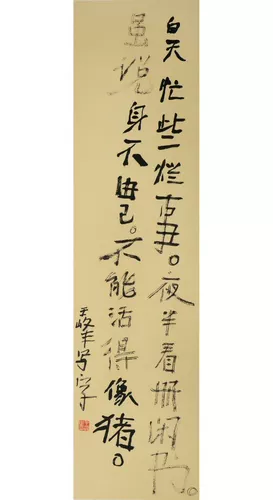 白天忙些烂古事。夜半看册闲书。
虽说身不由己。不能活得像猪。
王峰年写字